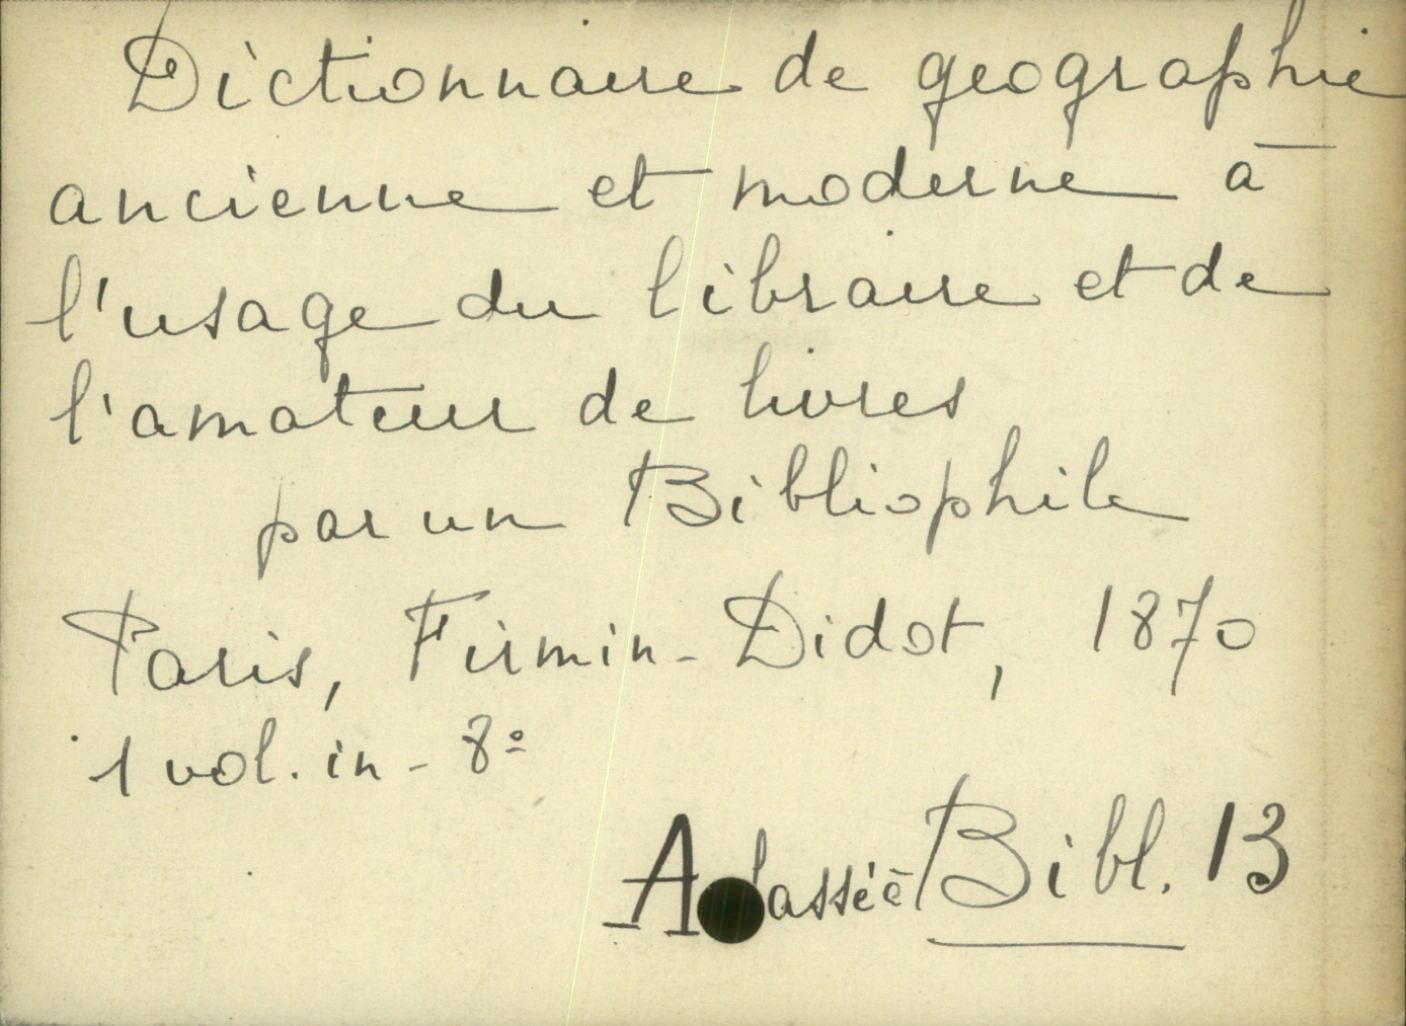 Dictionnaire de geographie
ancienne et moderne à
l'usage du libraire et de
l'amateur de livres
par un Bibliophile
Paris, Firmin-Didot, 1870
1 vol. in-8º
A classé à Bibl. 13